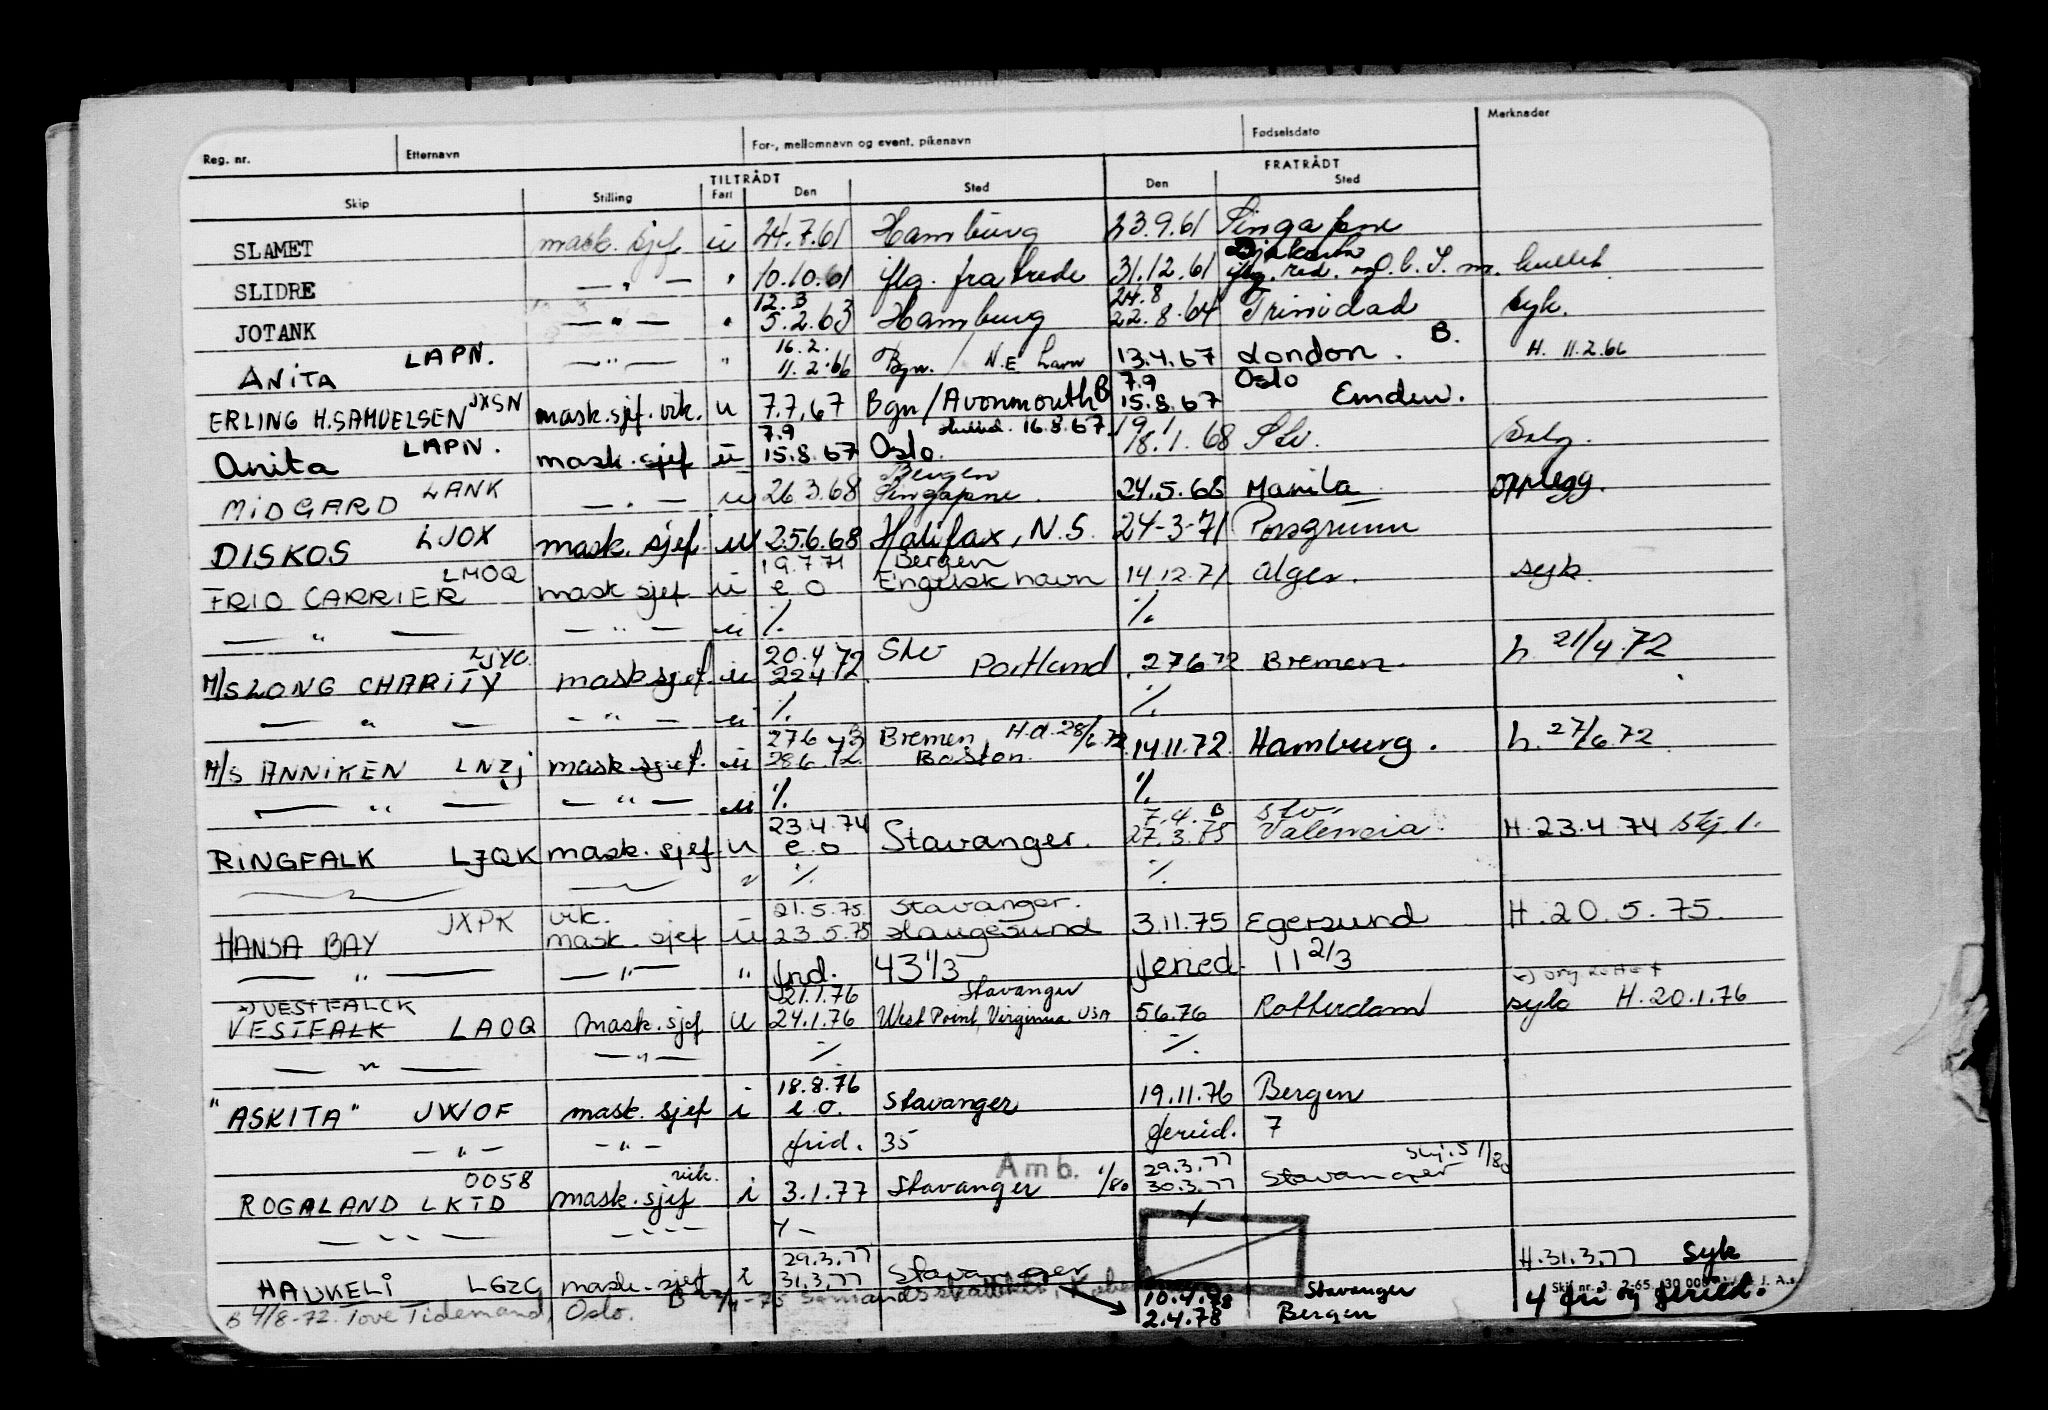 Reg. nr. Etternavn For-, mellomnavn og event. pikenavn Fødselsdato Merknader
TILTRÅDT FRATRÅDT
Skip Stilling Fart Den Sted Den Sted
SLAMET mask. sjef u 24.7.61 Hamburg 23.9.61 Singapore
Djakarta
SLIDRE — " — " 10.10.61 iflg. fra brede 31.12.61 iflg. red.
12.3 24.8
JOTANK — " — " 5.2.63 Hamburg 22.8.64 Trinidad syk.
16.2. B.
ANITA LAPN. — " — " 11.2.66 Bgn. / N.E havn 13.4.67 London. H. 11.2.66
7.9 Oslo
ERLING H. SAMUELSEN JXSN mask. sjef. vik. u 7.7.67 Bgn/Avonmouth B 15.8.67 Emden.
7.9 16.8.67 19.1
Anita LAPN. mask. sjef u 15.8.67 Oslo. 18.1.68 Stv. Salg.
Bergen
MIDGARD LANK — " — u 26.3.68 Singapore. 24.5.68 Manila opplegg.
DISKOS LJOX mask. sjef. u 25.6.68 Halifax, N.S. 24-3-71 Porsgrunn
19.7.71 Bergen
FRIO CARRIER LMOQ mask sjef u e o Engelsk havn 14.12.71 Alger. syk.
— " — — " — u ·/. ·/.
20.4.72 Stv
M/S LONG CHARITY LJYO mask sjef. u 22.4.72. Portland 27.6.72 Bremen. h. 21/4.72
— " — — " — u ·/. ·/.
27.6.72 Bremen H.d. 28/6.72
M/S ANNIKEN LNZJ mask. sjef. u 28.6.72 Boston. 14.11.72 Hamburg. h. 27/6.72
— " — — " — u ·/. ·/.
23.4.74 7.4. B Stv.
RINGFALK LJQK mask. sjef u e.o Stavanger. 27.3.75 Valencia. H. 23.4.74 Skj. 1.
" ·/. ·/.
vik. 21.5.75. Stavanger.
HANSA BAY JXPK mask. sjef u 23.5.75 Haugesund 3.11.75 Egersund H. 20.5.75.
— " — — " — " frid. 43 1/3 feried. 11 2/3
x) VESTFALCK 21.1.76 Stavanger x) Dry rettet
VESTFALK LAOQ Mask. sjef u 24.1.76 West Point, Virginia USA 5.6.76 Rotterdam syk H. 20.1.76
— " — — " — ·/. ·/.
18.8.76
"ASKITA" JWOF mask. sjef i e.o. Stavanger 19.11.76 Bergen
— " — — " — frid. 35 feried. 7
0058 vik. Amb. 29.3.77 Skj. 5 1/80
ROGALAND LKTD mask. sjef i 3.1.77 Stavanger 1/80 30.3.77 Stavanger
— " — — " — ·/. ·/.
29.3.77
HAUKELI LGZC mask. sjef i 31.3.77 Stavanger H. 31.3.77 Syk
10.4.78 Stavanger 4 fri og feried.
B 4/8-72. Tove Tidemand, Oslo. 2.4.78 Bergen